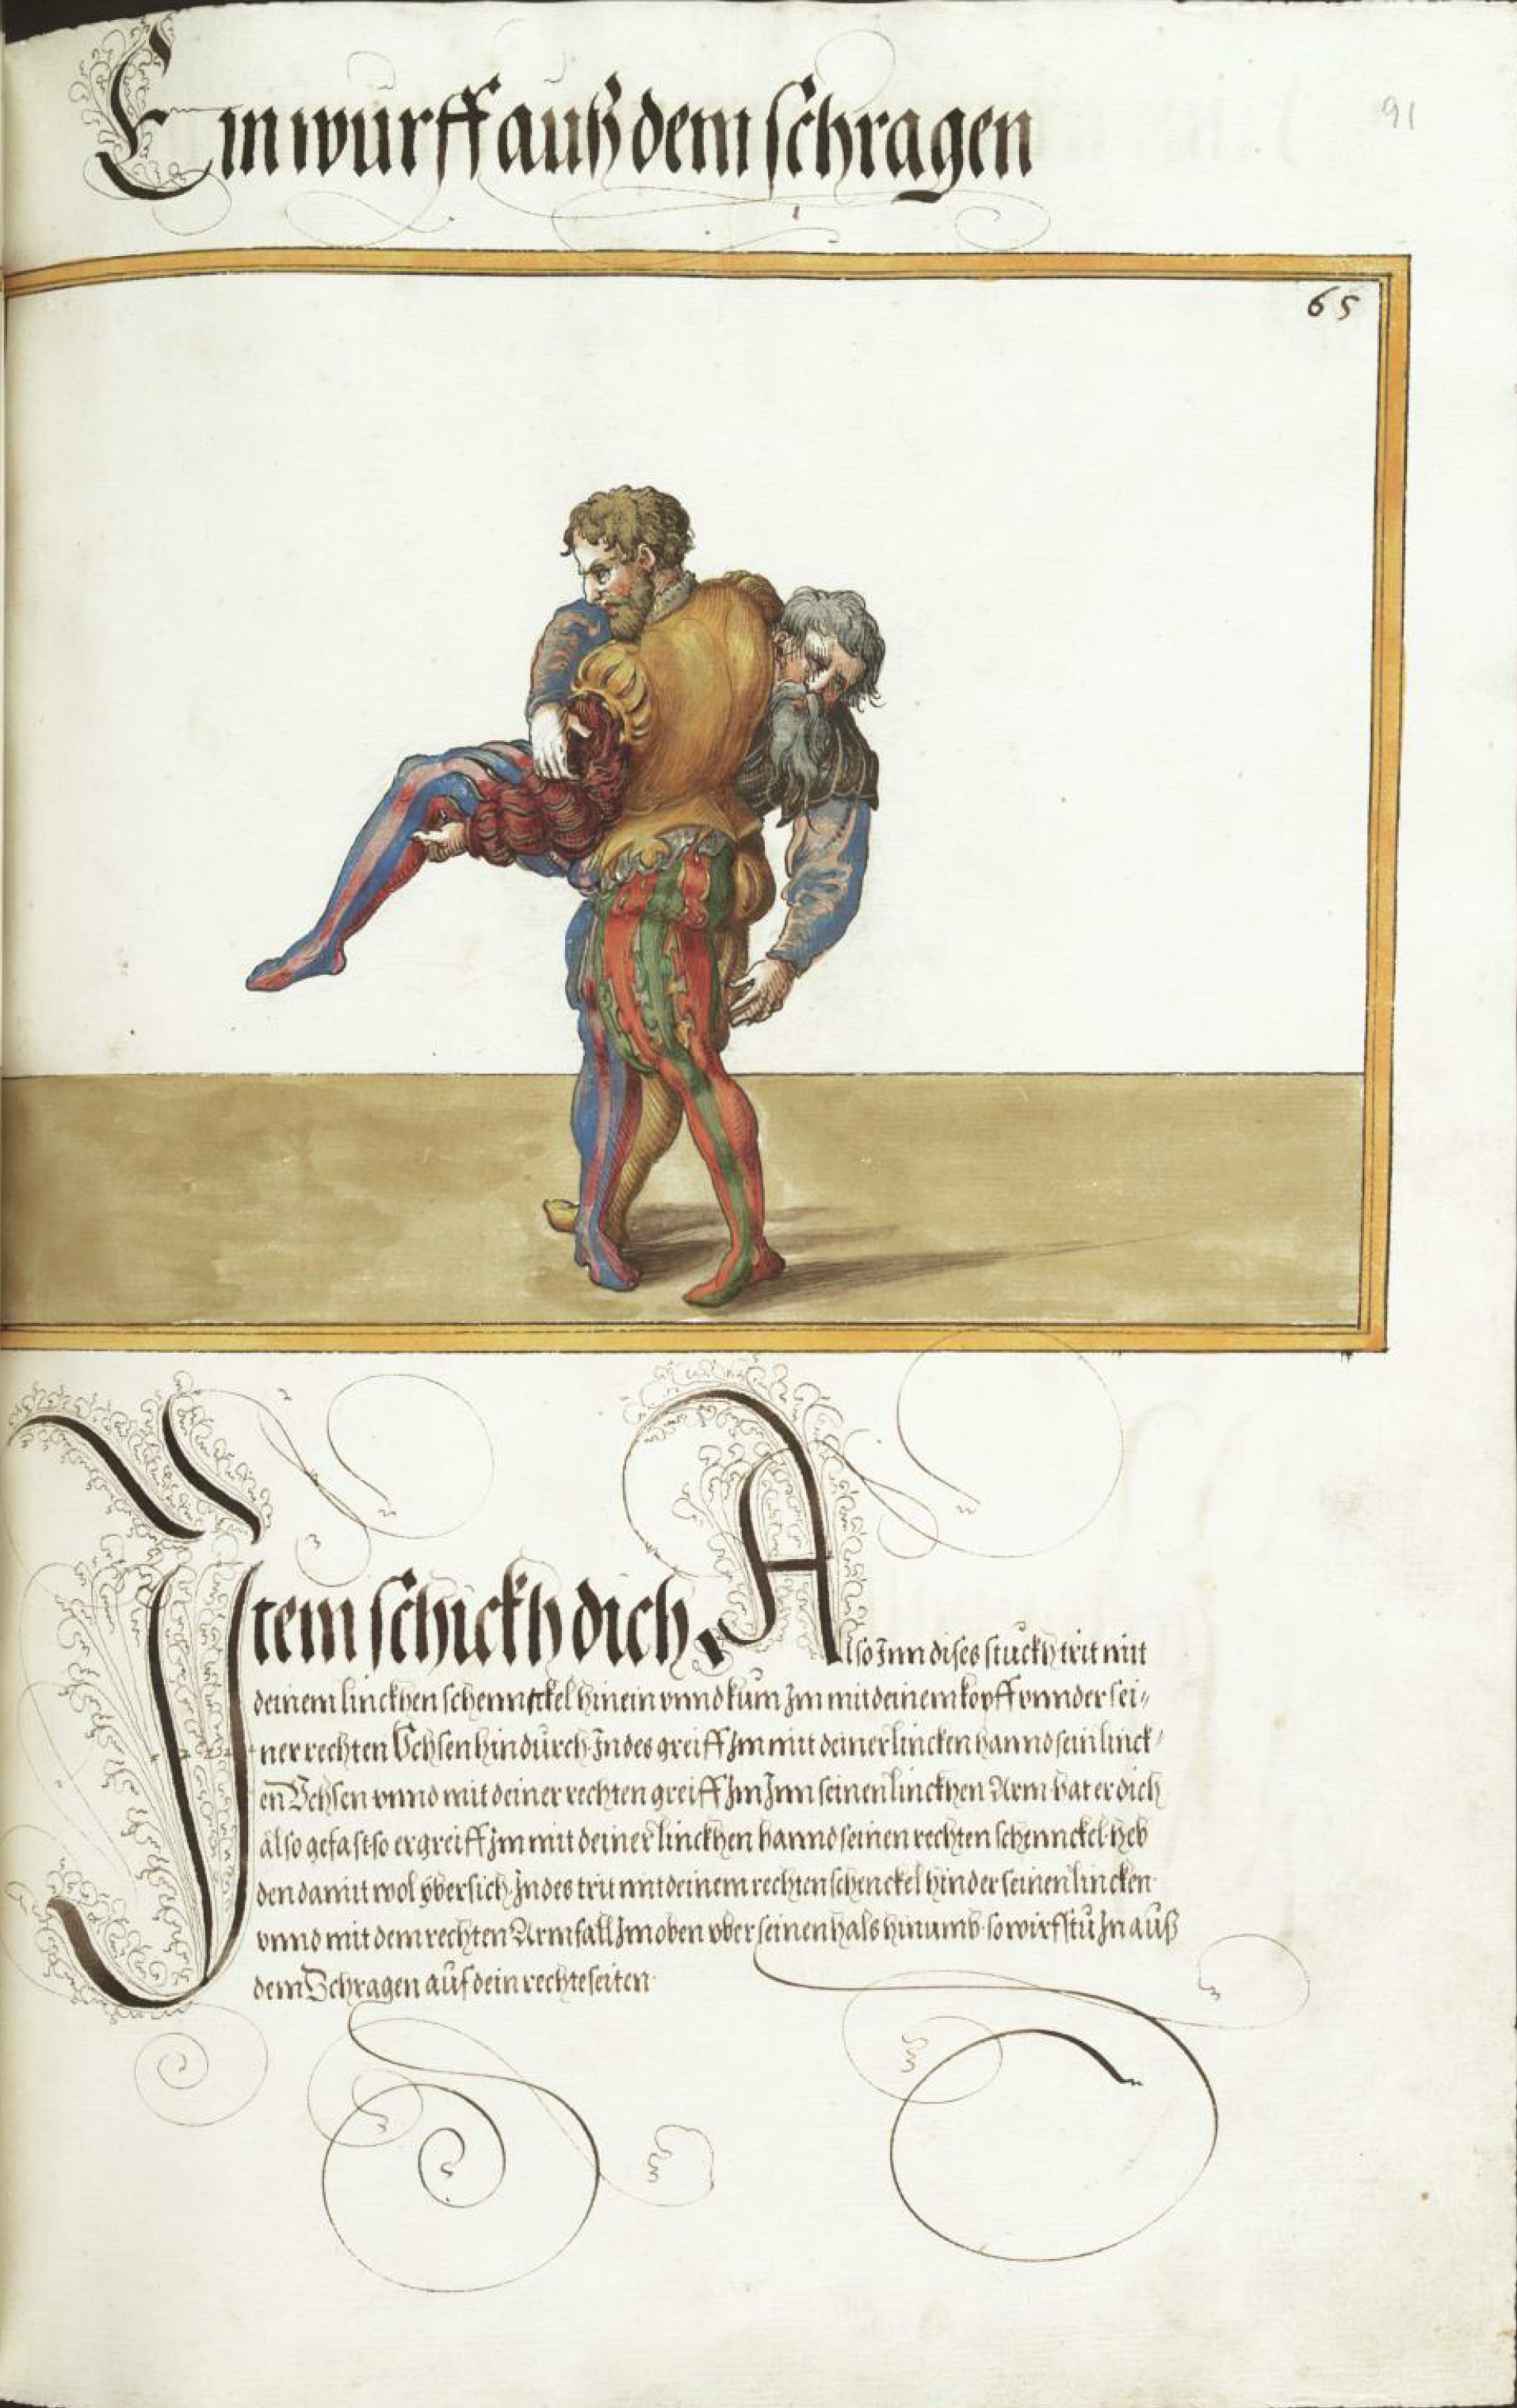 Ein wurff auß dem schragen
91
65
Item schickh dich, Also Inn dises stuckh trit mit
deinem linckhen schennckel hinein vnnd kum Im mit deinem kopff vnnder sei-
ner rechten Vchsen hindurch Indes greiff Im mit deiner lincken hannd sein linck-
en Vchsen vnnd mit deiner rechten greiff Im Inn seinen linckhen Arm hat er dich
also gefast so ergreiff Im mit deiner linckhen hannd seinen rechten schennckel heb
den damit wol vbersich Indes trit mit deinem rechten schenckel hinder seinen lincken
vnnd mit dem rechten Arm fall Im oben vber seinen hals hinumb so wirfstu In auß
dem Schragen auf dein rechte seiten